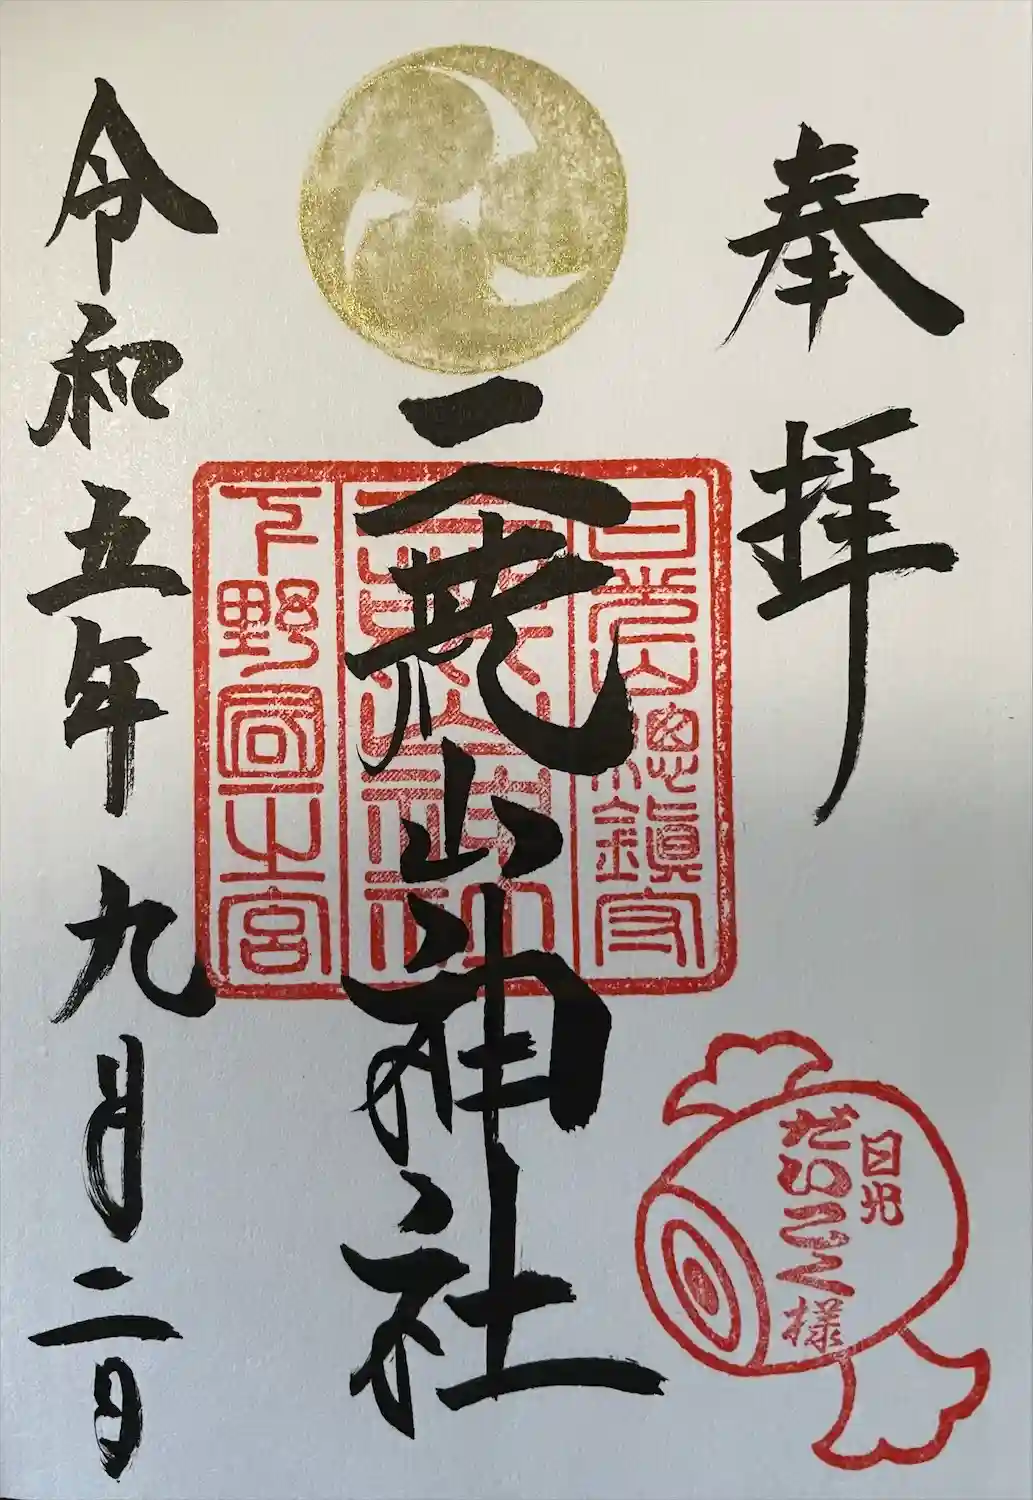 奉拝
日光山総鎮守
二荒山神社
下野國一之宮
二荒山神社
日光
だいこく様
令和五年九月二日